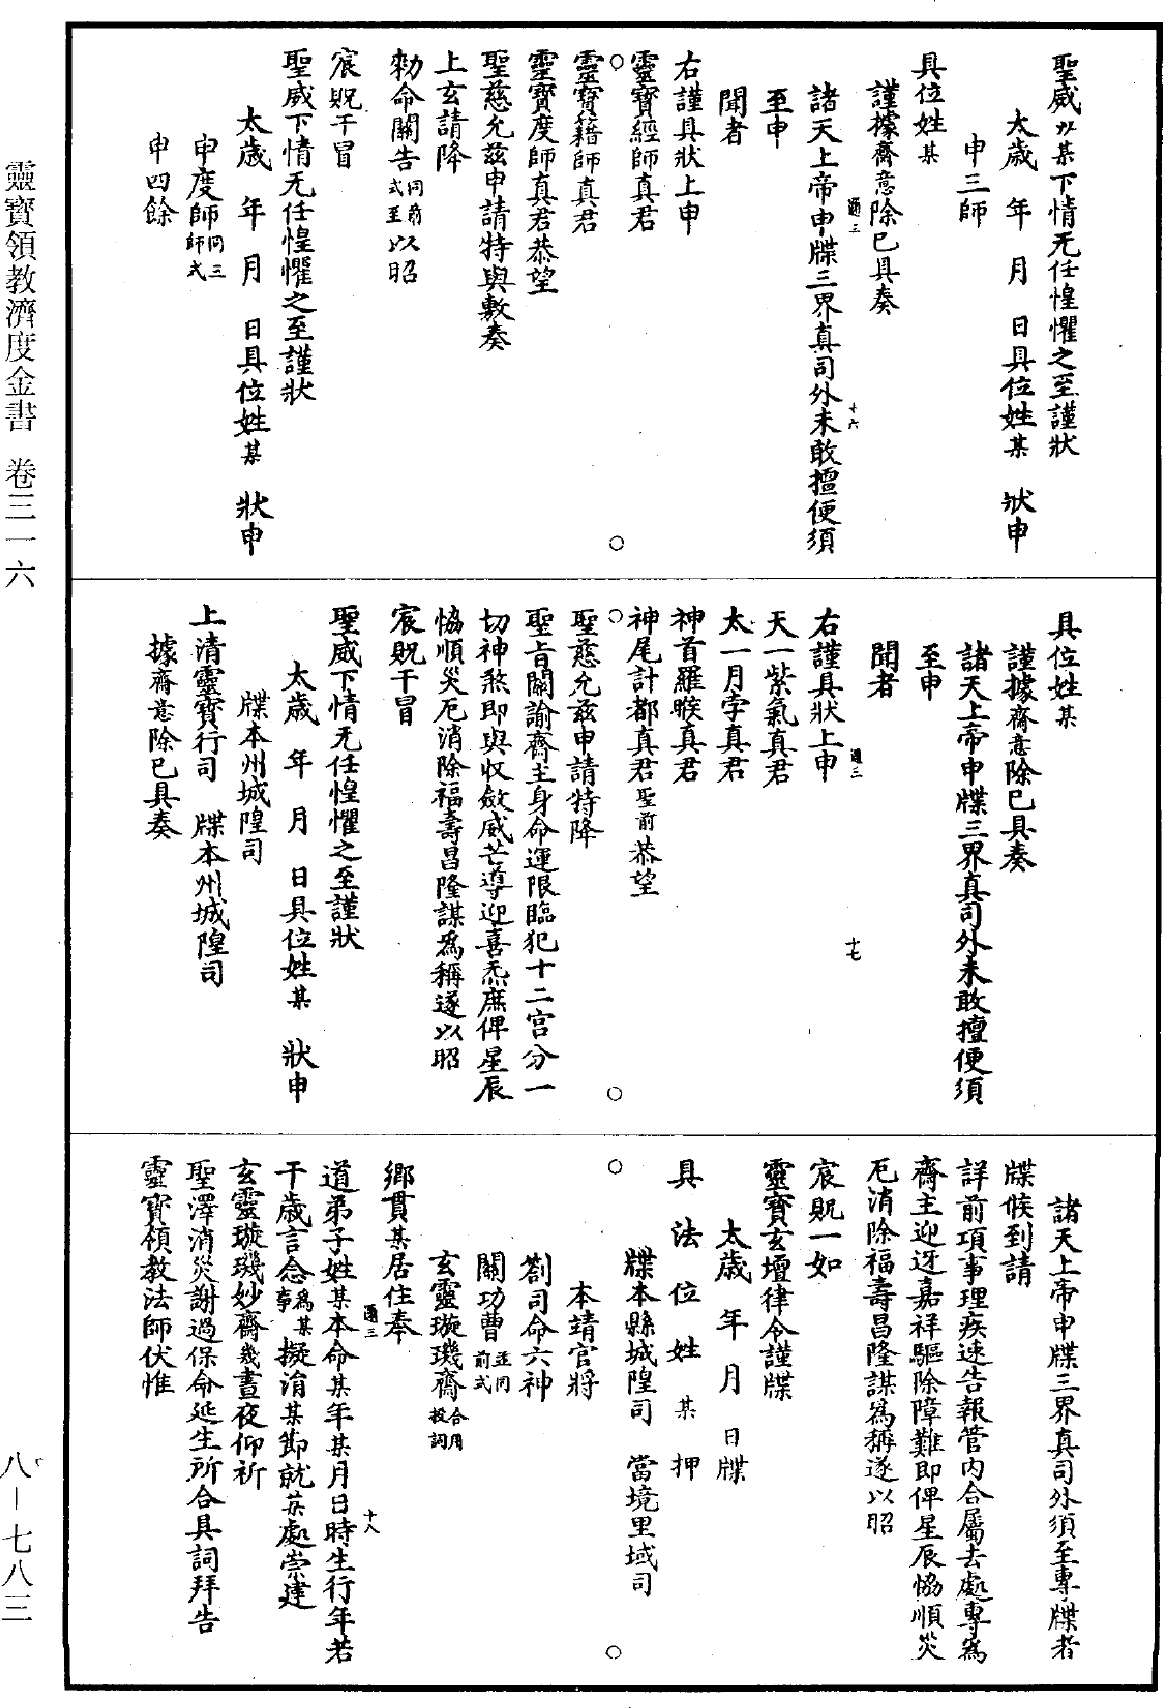 聖威以某下情无任惶懼之至謹狀
太歲　年　月　日具位姓某　狀申
申三師
具位姓某
謹據齋意除已具奏
諸天上帝申牒三界真司外未敢擅便須
通三　十六
至申
聞者
右謹具狀上申
靈寶經師真君
靈寶籍師真君
靈寶度師真君恭望
聖慈允茲申請特與敷奏
上玄請降
勑命關告同前式至以昭
宸貺干冒
聖威下情无任惶懼之至謹狀
太歲　年　月　日具位姓某　狀申
申度師同三師式
申四餘
具位姓某
謹據齋意除已具奏
諸天上帝申牒三界真司外未敢擅便須
至申
聞者
通三　十七
右謹具狀上申
天一紫氣真君
太一月孛真君
神首羅睺真君
神尾計都真君聖前恭望
聖慈允茲申請特降
聖旨關諭齋主身命運限臨犯十二宮分一
切神煞即與收斂威芒導迎喜炁庶俾星辰
恊順災厄消除福壽昌隆謀為稱遂以昭
宸貺干冒
聖威下情无任惶懼之至謹狀
太歲　年　月　日具位姓某　狀申
牒本州城隍司
上清靈寶行司　牒本州城隍司
據齋意除已具奏
諸天上帝申牒三界真司外須至專牒者
牒候到請
詳前項事理疾速告報管内合屬去處專為
齋主迎迓嘉祥驅除障難即俾星辰恊順災
厄消除福壽昌隆謀為稱遂以昭
宸貺一如
靈寶玄壇律令謹牒
太歲　年　月　日牒
具　法　位　姓　某　押
牒本縣城隍司　當境里域司
本靖官將
劄司命六神
關功曹並同前式
玄靈璇璣齋合用投詞
鄉貫某居住奉
通三　十八
道弟子姓某本命某年某月日時生行年若
干歲言念為某事擬涓某節就某處崇建
玄靈璇璣妙齋幾晝夜仰祈
聖澤消災謝過保命延生所合具詞拜告
靈寶領教法師伏惟
靈寶領教濟度金書　卷三一六
八—七八三